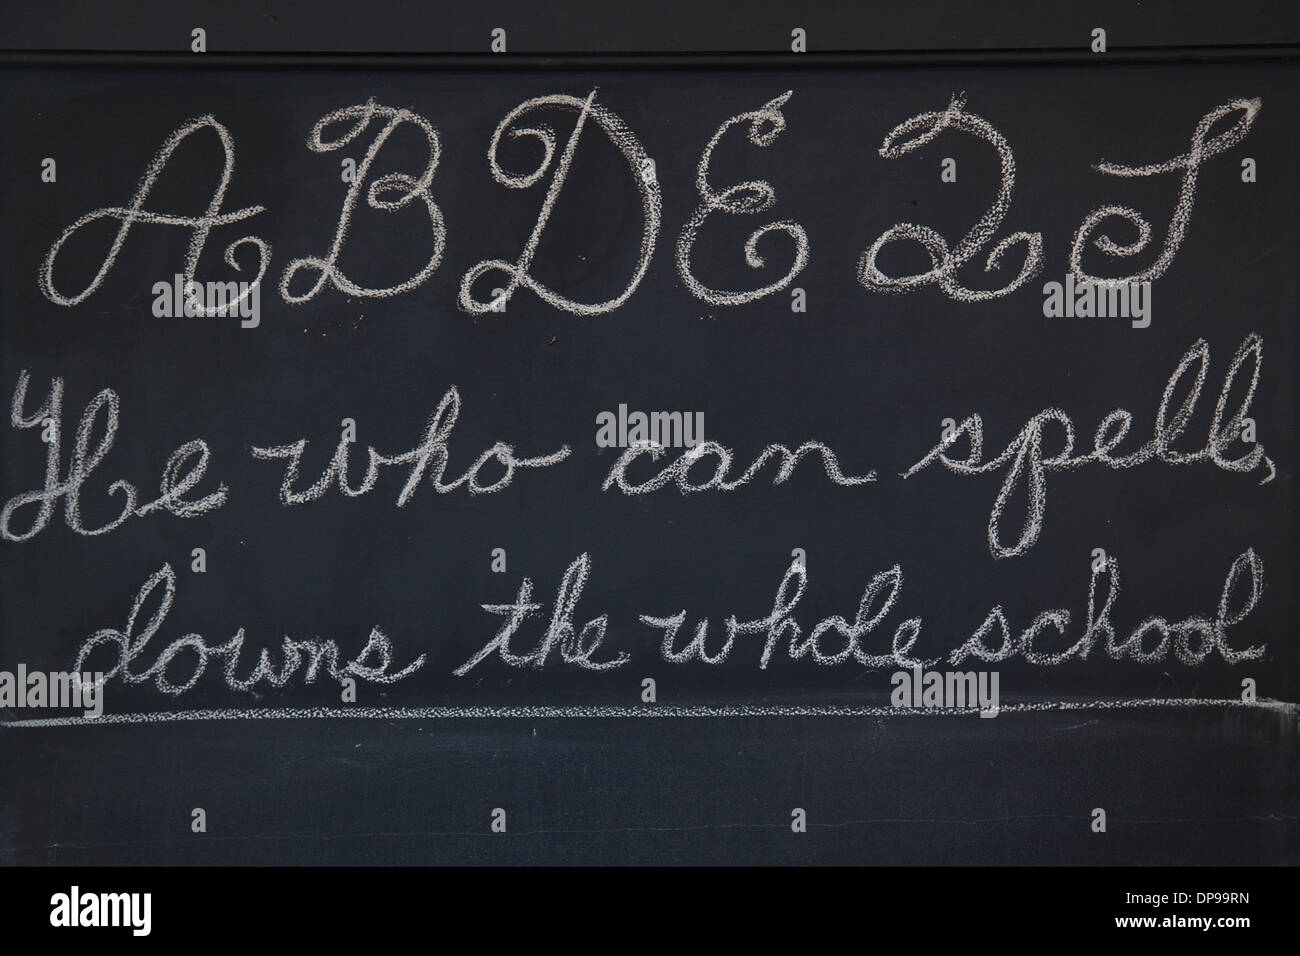 A B D E Q S
He who can spell,
downs the whole school
alamy
Image ID: DP99RN
www.alamy.com